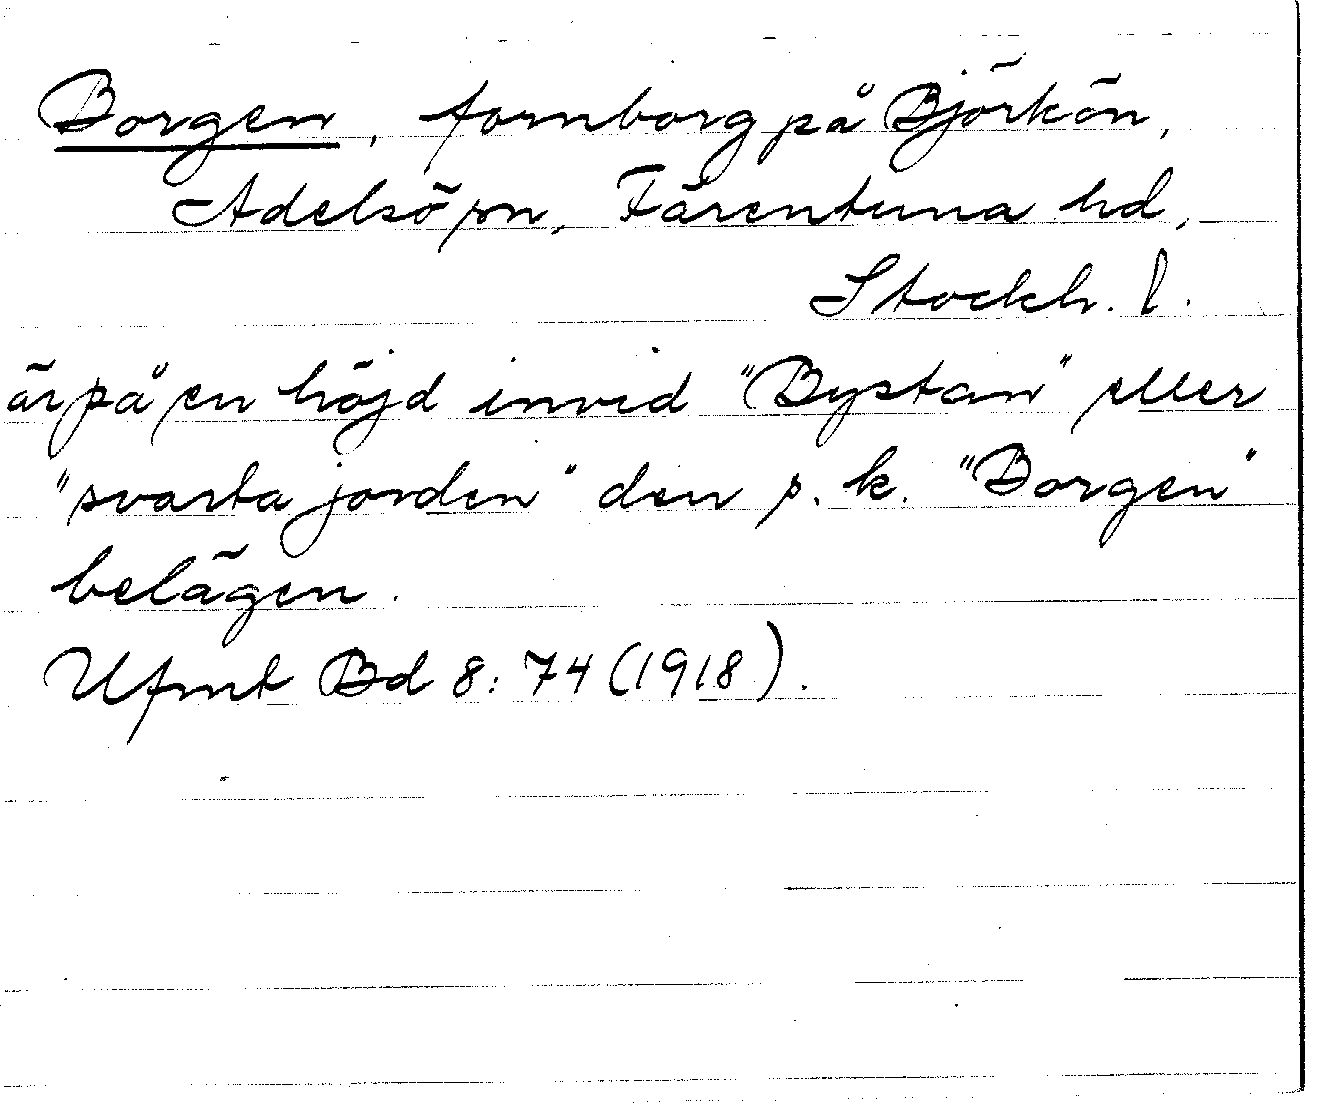 Borgen, fornborg på Björkön,
Adelsö sn, Färentuna hd,
Stockh. l.
är på en höjd invid "Bystan" eller
"svarta jorden" den s. k. "Borgen"
belägen.
Ufmt Bd 8: 74 (1918).